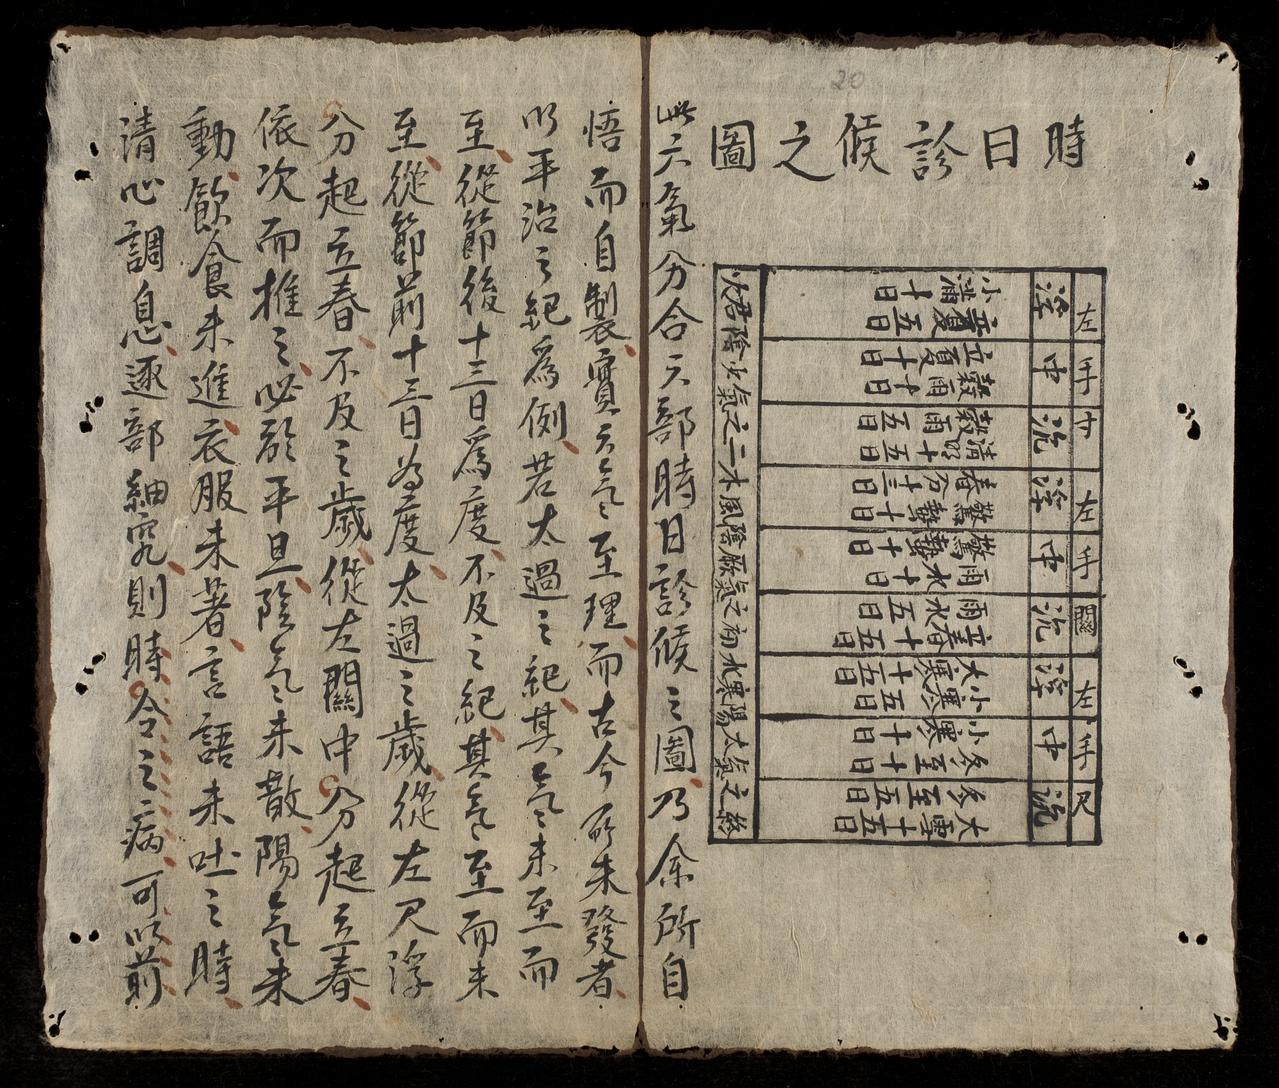 時日診候之圖
左手寸
浮 中 沉
小滿十五日 立夏
立夏十日 穀雨十日
穀雨五日 清明十五日
左手關
浮 中 沉
春分十三日 驚蟄十日
驚蟄十日 雨水十日
雨水五日 立春十五日
左手尺
浮 中 沉
大寒十五日 小寒五日
小寒十日 冬至十日
冬至五日 大雪十五日
火君陰少氣之二 木風陰厥氣之初 水寒陽太氣之終
此六氣分合六部時日診候之圖乃余所自
悟而自製實天氣至理而古今所未發者
以平治之紀為例若太過之紀其氣未至而
至從節後十三日爲度不及之紀其氣至而未
至從節前十三日為度太過之歲從左尺浮
分起立春不及之歲從左關中分起立春
依次而推之必欲平旦陰氣未散陽氣未
動飲食未進衣服未著言語未吐之時
清心調息逐部細究則時令之病可以前